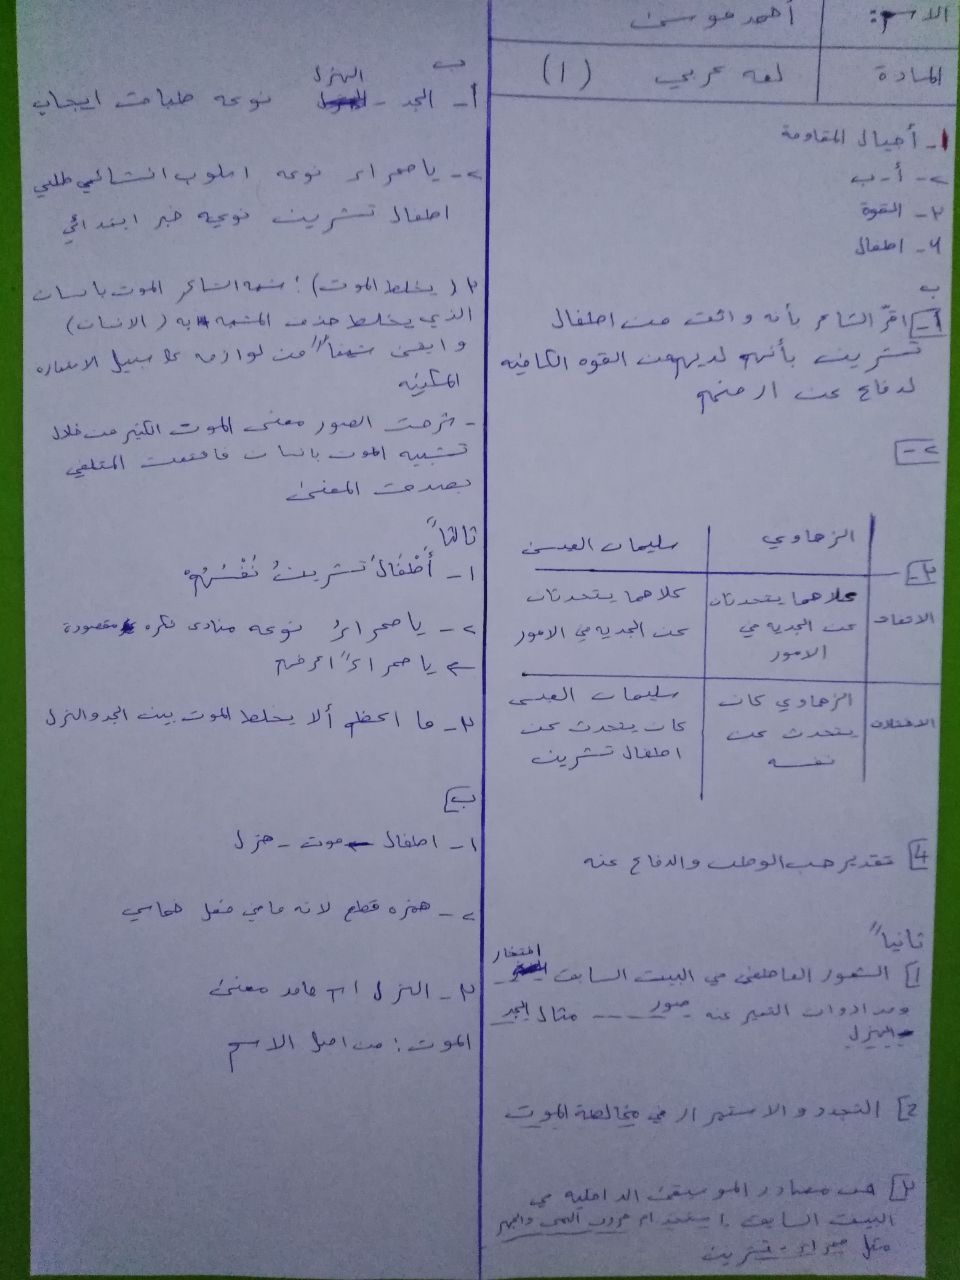 الاسم: أحمد موسى
المادة لغه عربي (1)
1- أجيال المقاومة
2- أ - ب
3- القوة
4- اطفال
ب
1- اقرّ الشاعر بأنه واثق من اطفال
تشرين بأنهم لديهم القوه الكافيه
لدفاع عن ارضهم
2-
3-
الزهاوي سليمان العيسى
الاتفاق كلاهما يتحدثان كلاهما يتحدثان
عن الجديه في عن الجديه في الامور
الامور
الاختلاف الزهاوي كان سليمان العيسى
يتحدث عن كان يتحدث عن
نفسه اطفال تشرين
4 تقدير حب الوطن والدفاع عنه
ثانياً
افتخار
1 الشعور العاطفي في البيت السابق
ومن ادوات التعبير عنه صور مثال الجد
الهزل
2 التجدد والاستمرار في مخالطة الموت
3 من مصادر الموسيقى الداخليه في
البيت السابق استخدام حروف الهمس والجهر
مثل صحراء - تشرين
ب
الهزل
1- الجد - نوعه طباق ايجاب
2- يا صحراء نوعه اسلوب انشائي طلبي
اطفال تشرين نوعه خبر ابتدائي
3 (يخلط الموت): شبه الشاعر الموت بانسان
الذي يخلط حذف المشبه به (الانسان)
وابقى شيئاً من لوازمه على سبيل الاستعاره
المكنيه
- شرحت الصور معنى الموت الكثير من خلال
تشبيه الموت بانسان فاقنعت المتلقي
بصدق المعنى
ثالثاً
1- أطْفَالُ تشرينُ نَفْسُهُم
2- يا صحراءُ نوعه منادى نكره مقصودة
يا صحراءً
3- ما الا يخلط الموت بين الجد والهزل
ب
1- اطفال موت - هزل
2- همزه قطع لانه ماضي فعل خماسي
3- الهزل اسم جامد معنى
الموت: من اصل الاسم